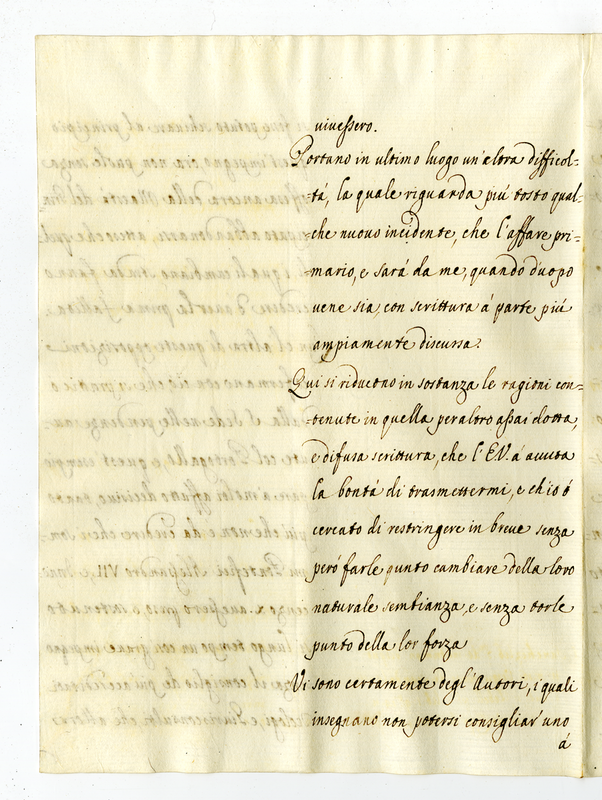 vivessero.
Portano in ultimo luogo un'altra difficol=
tá, la quale riguarda piú tosto qual=
=che nuovo incidente, che l'affare pri=
=mario, e sará da me, quando d'uopo
vene sia, con scrittura á parte piú
ampiamente discussa.
Qui si riducono in sostanza le ragioni con=
=tenute in quella peraltro assai dotta,
e difusa scrittura, che l'E.V. á avuta
la bontá di trasmettermi, e ch'io ó
cercato di restringere in breve senza
peró farle punto cambiare della loro
naturale sembianza, e senza torle
punto della lor forza
Vi sono certamente degl'Autori, i quali
insegnano non potersi consigliar' uno
á